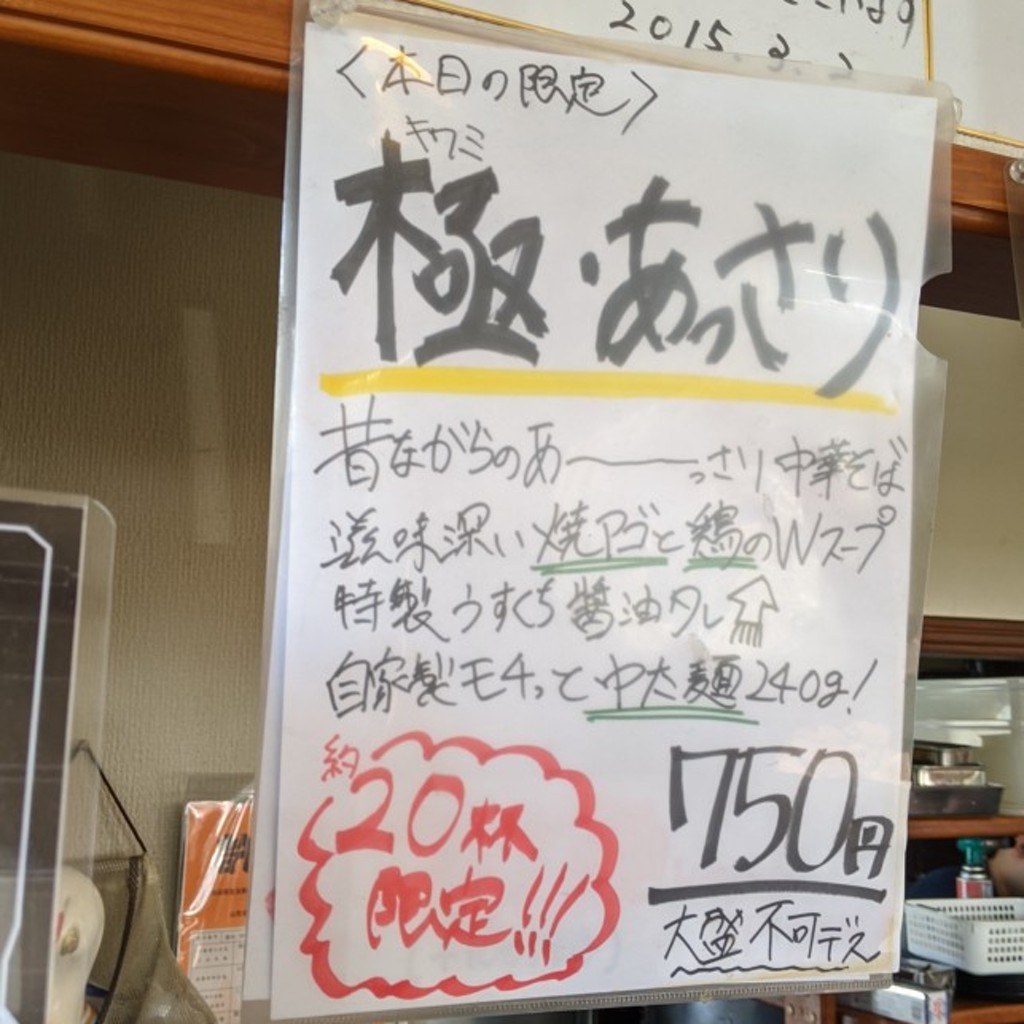 2015.3.2
〈本日の限定〉
キワミ
極・あっさり
昔ながらのあ――っさり中華そば
滋味深い焼アゴと鶏のWスープ
特製うすくち醤油タレ
自家製モチっと中太麺240g!
約20杯
限定!!!
750円
大盛不可デス